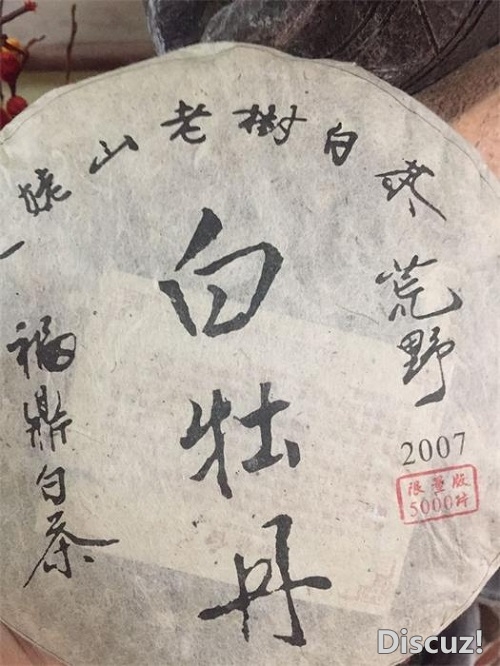 姥山老樹白茶
白牡丹
荒野
2007
限量版
5000片
福鼎白茶
Discuz!